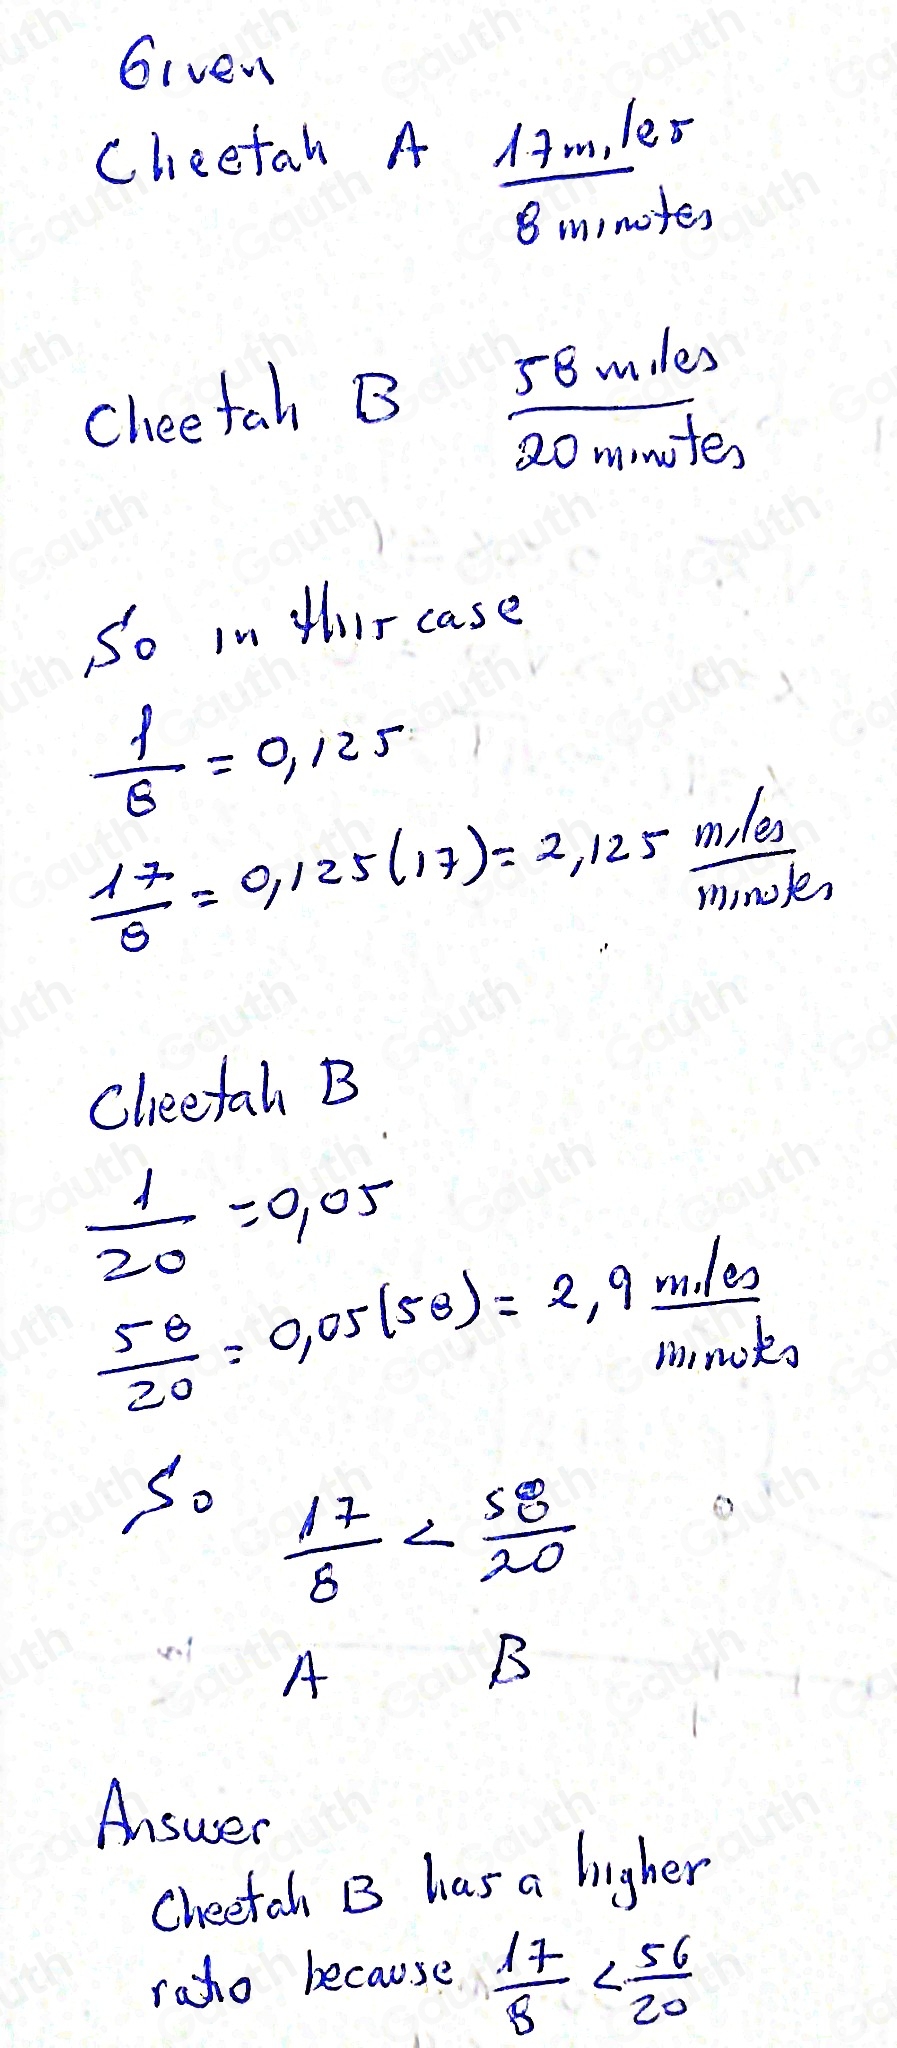 Given
Cheetah A 17 miles / 8 minutes
Cheetah B 58 miles / 20 minutes
So in this case
1/8 = 0,125
17/8 = 0,125(17) = 2,125 miles/minutes
Cheetah B
1/20 = 0,05
58/20 = 0,05(58) = 2,9 miles/minutes
So 17/8 < 58/20
A B
Answer
Cheetah B has a higher
ratio because 17/8 < 56/20
Gauth